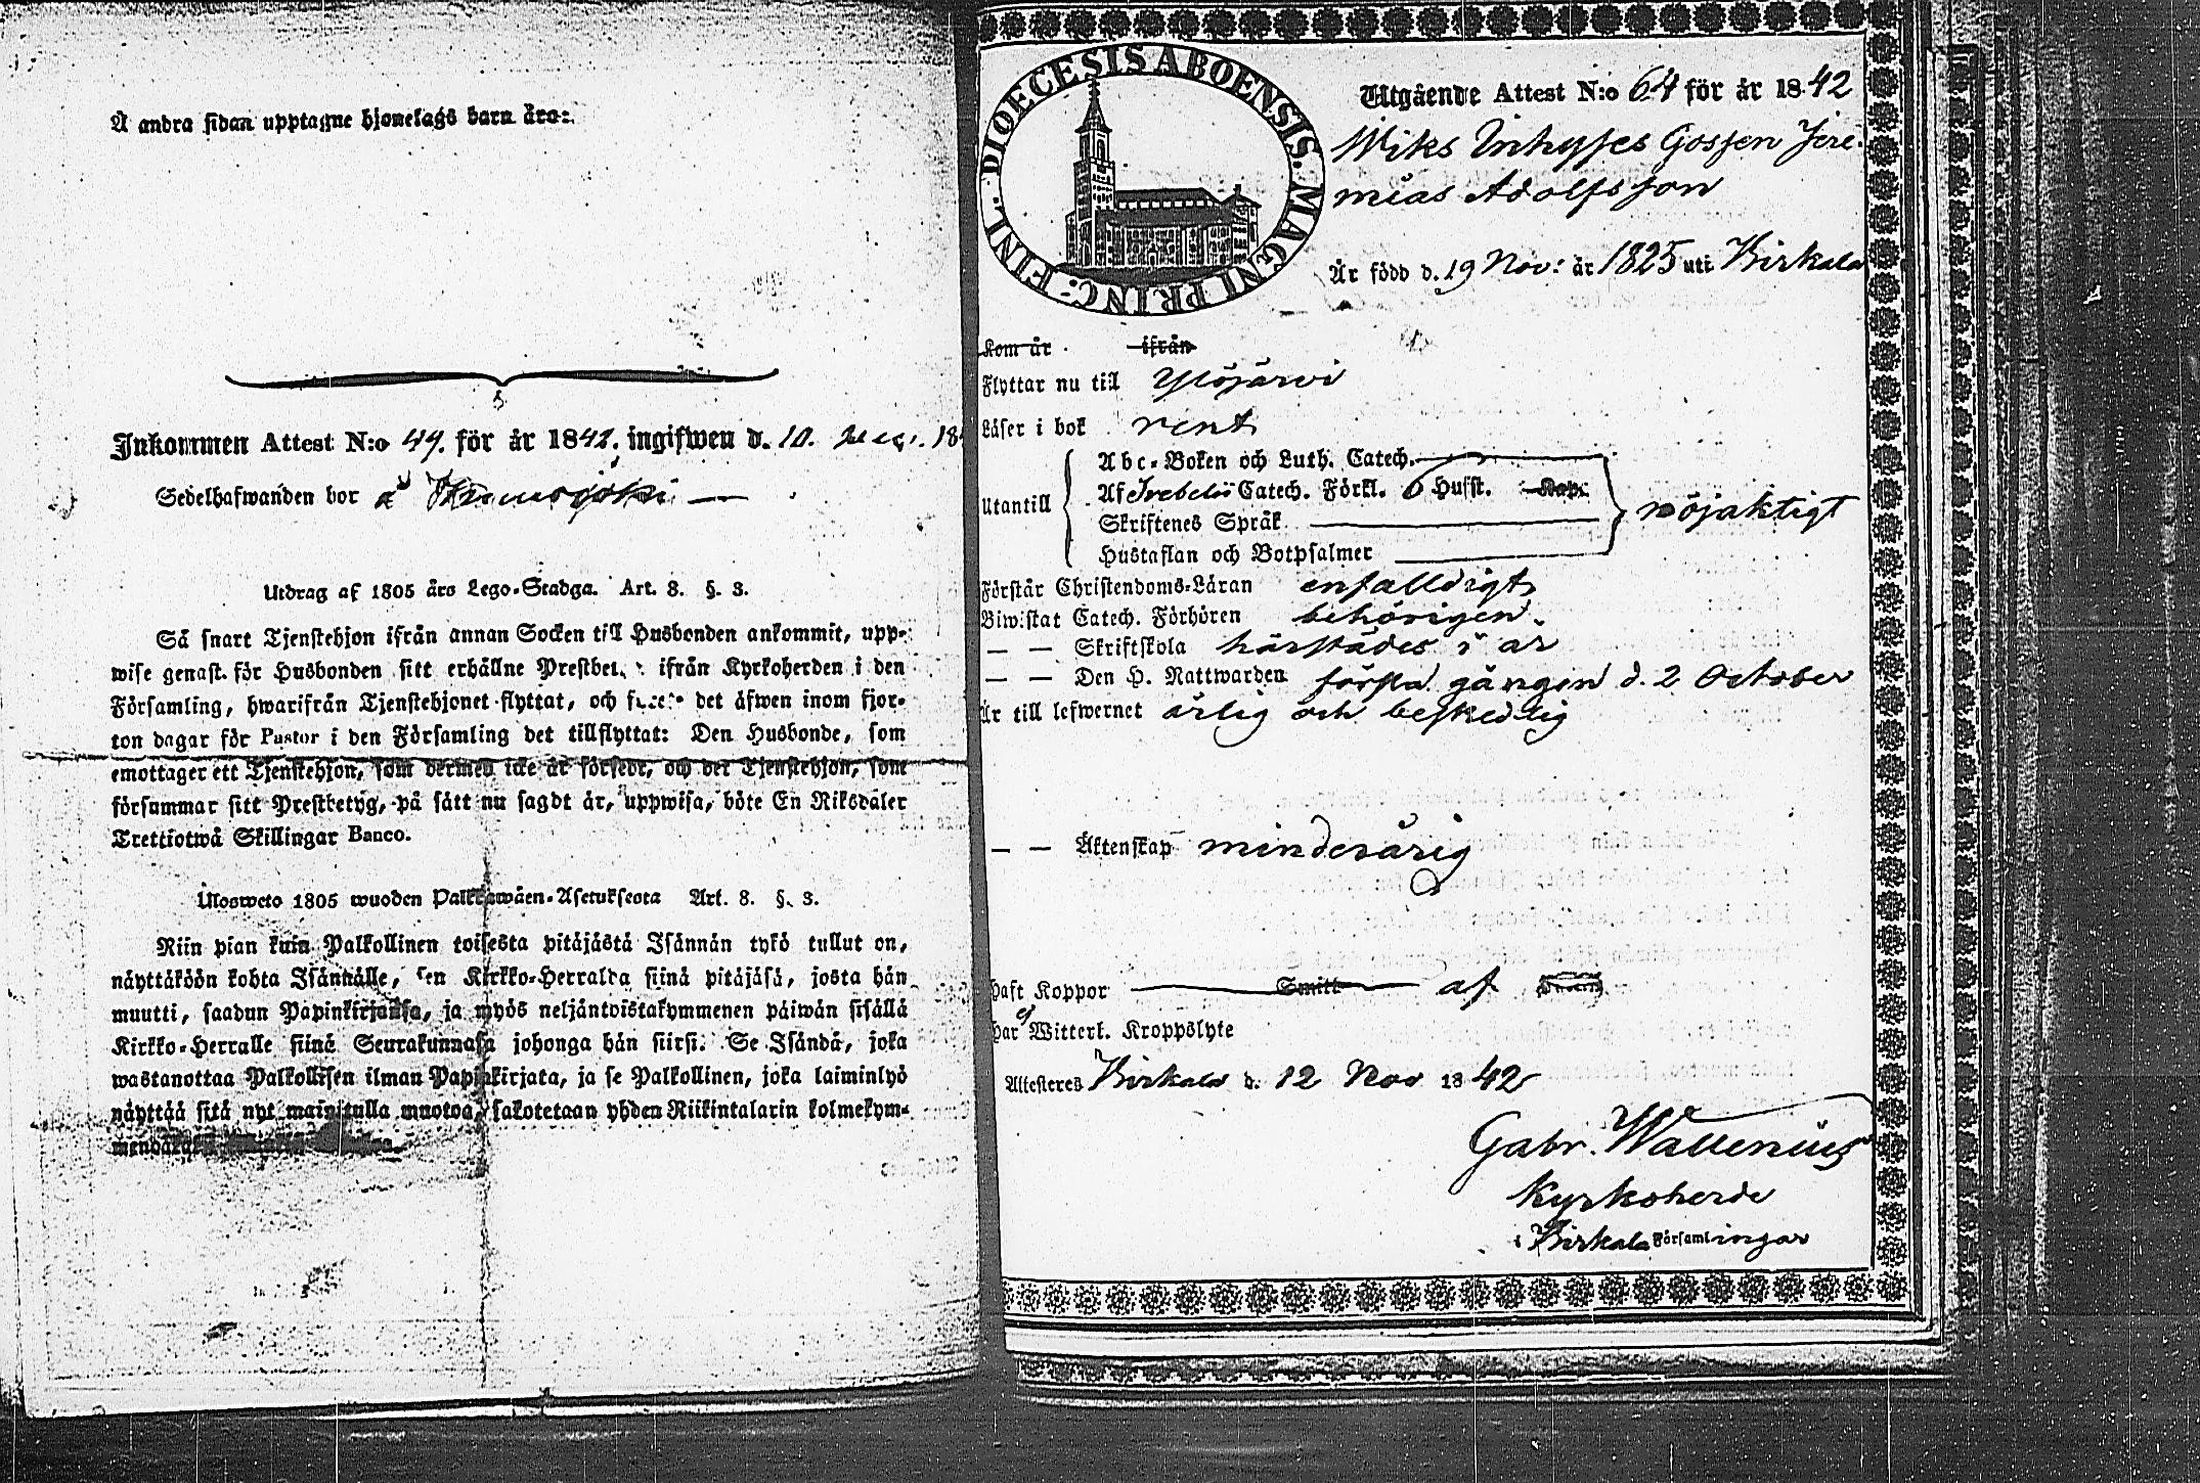 Å andra sidan upptagne hjonelags barn äro:
Inkommen Attest N:o 49. för år 1842, ingifwen d. 10. Dec. 18
Sedelhafwanden bor å
Utdrag af 1805 års Lego-Stadga. Art. 8. §. 3.
Så snart Tjenstehjon ifrån annan Socken till Husbonden ankommit, upp-
wise genast för Husbonden sitt erhållne Prestbet. ifrån Kyrkoherden i den
Församling, hwarifrån Tjenstehjonet flyttat, och det äfwen inom fjor-
ton dagar för Pastor i den Församling det tillflyttat: Den Husbonde, som
emottager ett Tjenstehjon, som dermed icke är försedt, och det Tjenstehjon, som
försummar sitt Prestbetyg, på sätt nu sagdt är, uppwisa, böte En Riksdaler
Trettiotwå Skillingar Banco.
Ulosweto 1805 wuoden Palkkawäen-Asetuksesta Art. 8. §. 3.
Niin pian kuin Palkollinen toisesta pitäjästä Isännän tykö tullut on,
näyttäköön kohta Isännälle, sen Kirkko-Herralda siinä pitäjäsä, josta hän
muutti, saadun Papinkirjansa, ja myös neljäntoistakymmenen päiwän sisällä
Kirkko-Herralle siinä Seurakunnasa johonga hän siirsi. Se Isändä, joka
wastanottaa Palkollisen ilman Papinkirjata, ja se Palkollinen, joka laiminlyö
näyttää sitä nyt mainitulla muotoa, sakotetaan yhden Riikintalarin kolmekym-
DIOECESIS ABOENSIS. MAGNI PRINC: FINL.
Utgående Attest N:o 64 för år 1842
Wiks Inhyses Gossen Jere-
mias Adolfsson
Är född d. 19 Nov: år 1825 uti Birkala
Kom år ifrån
Flyttar nu till Ylöjärvi
Läser i bok rent
Utantill
Abc-Boken och Luth. Catech.
Af Svebelii Catech. Förkl. 6 Hufst. Kap.
Skriftenes Språk
Hustaflan och Botpsalmer
nöjaktigt
Förstår Christendoms-Läran enfalldigt
Biwistat Catech. Förhören behörigen.
— — Skriftskola härstädes i år
— — Den H. Nattwarden första gången d. 2 October
Är till lefwernet ärlig och beskedlig
— — Äktenskap minderårig
Haft Koppor Smitt af
Har ej Witterl. Kroppslyte
Attesteres Birkala d. 12 Nov 1842
Gabr. Wallenius
Kyrkoherde
i Birkala Församlingar